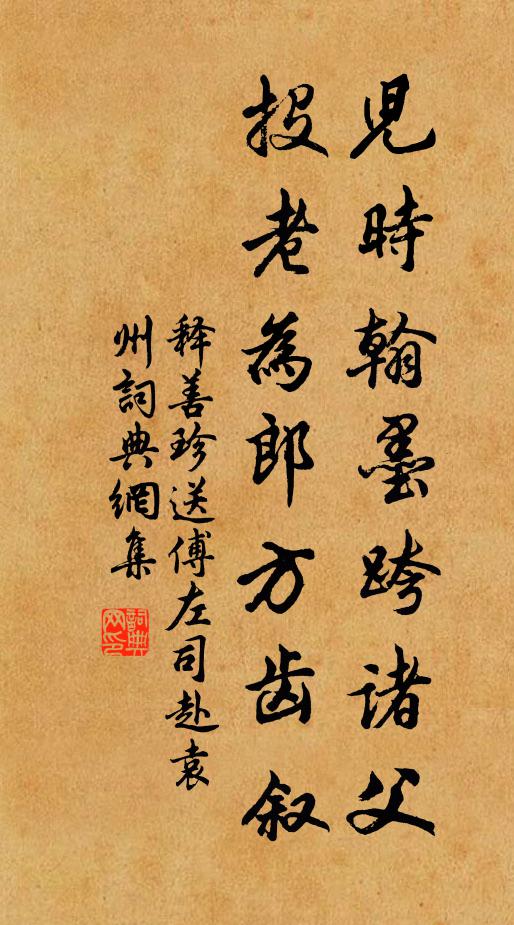 児時翰墨跨诸父
投老為郎方齿叙
释善珍送傅左司赴袁
州詞典網集
詞典网印